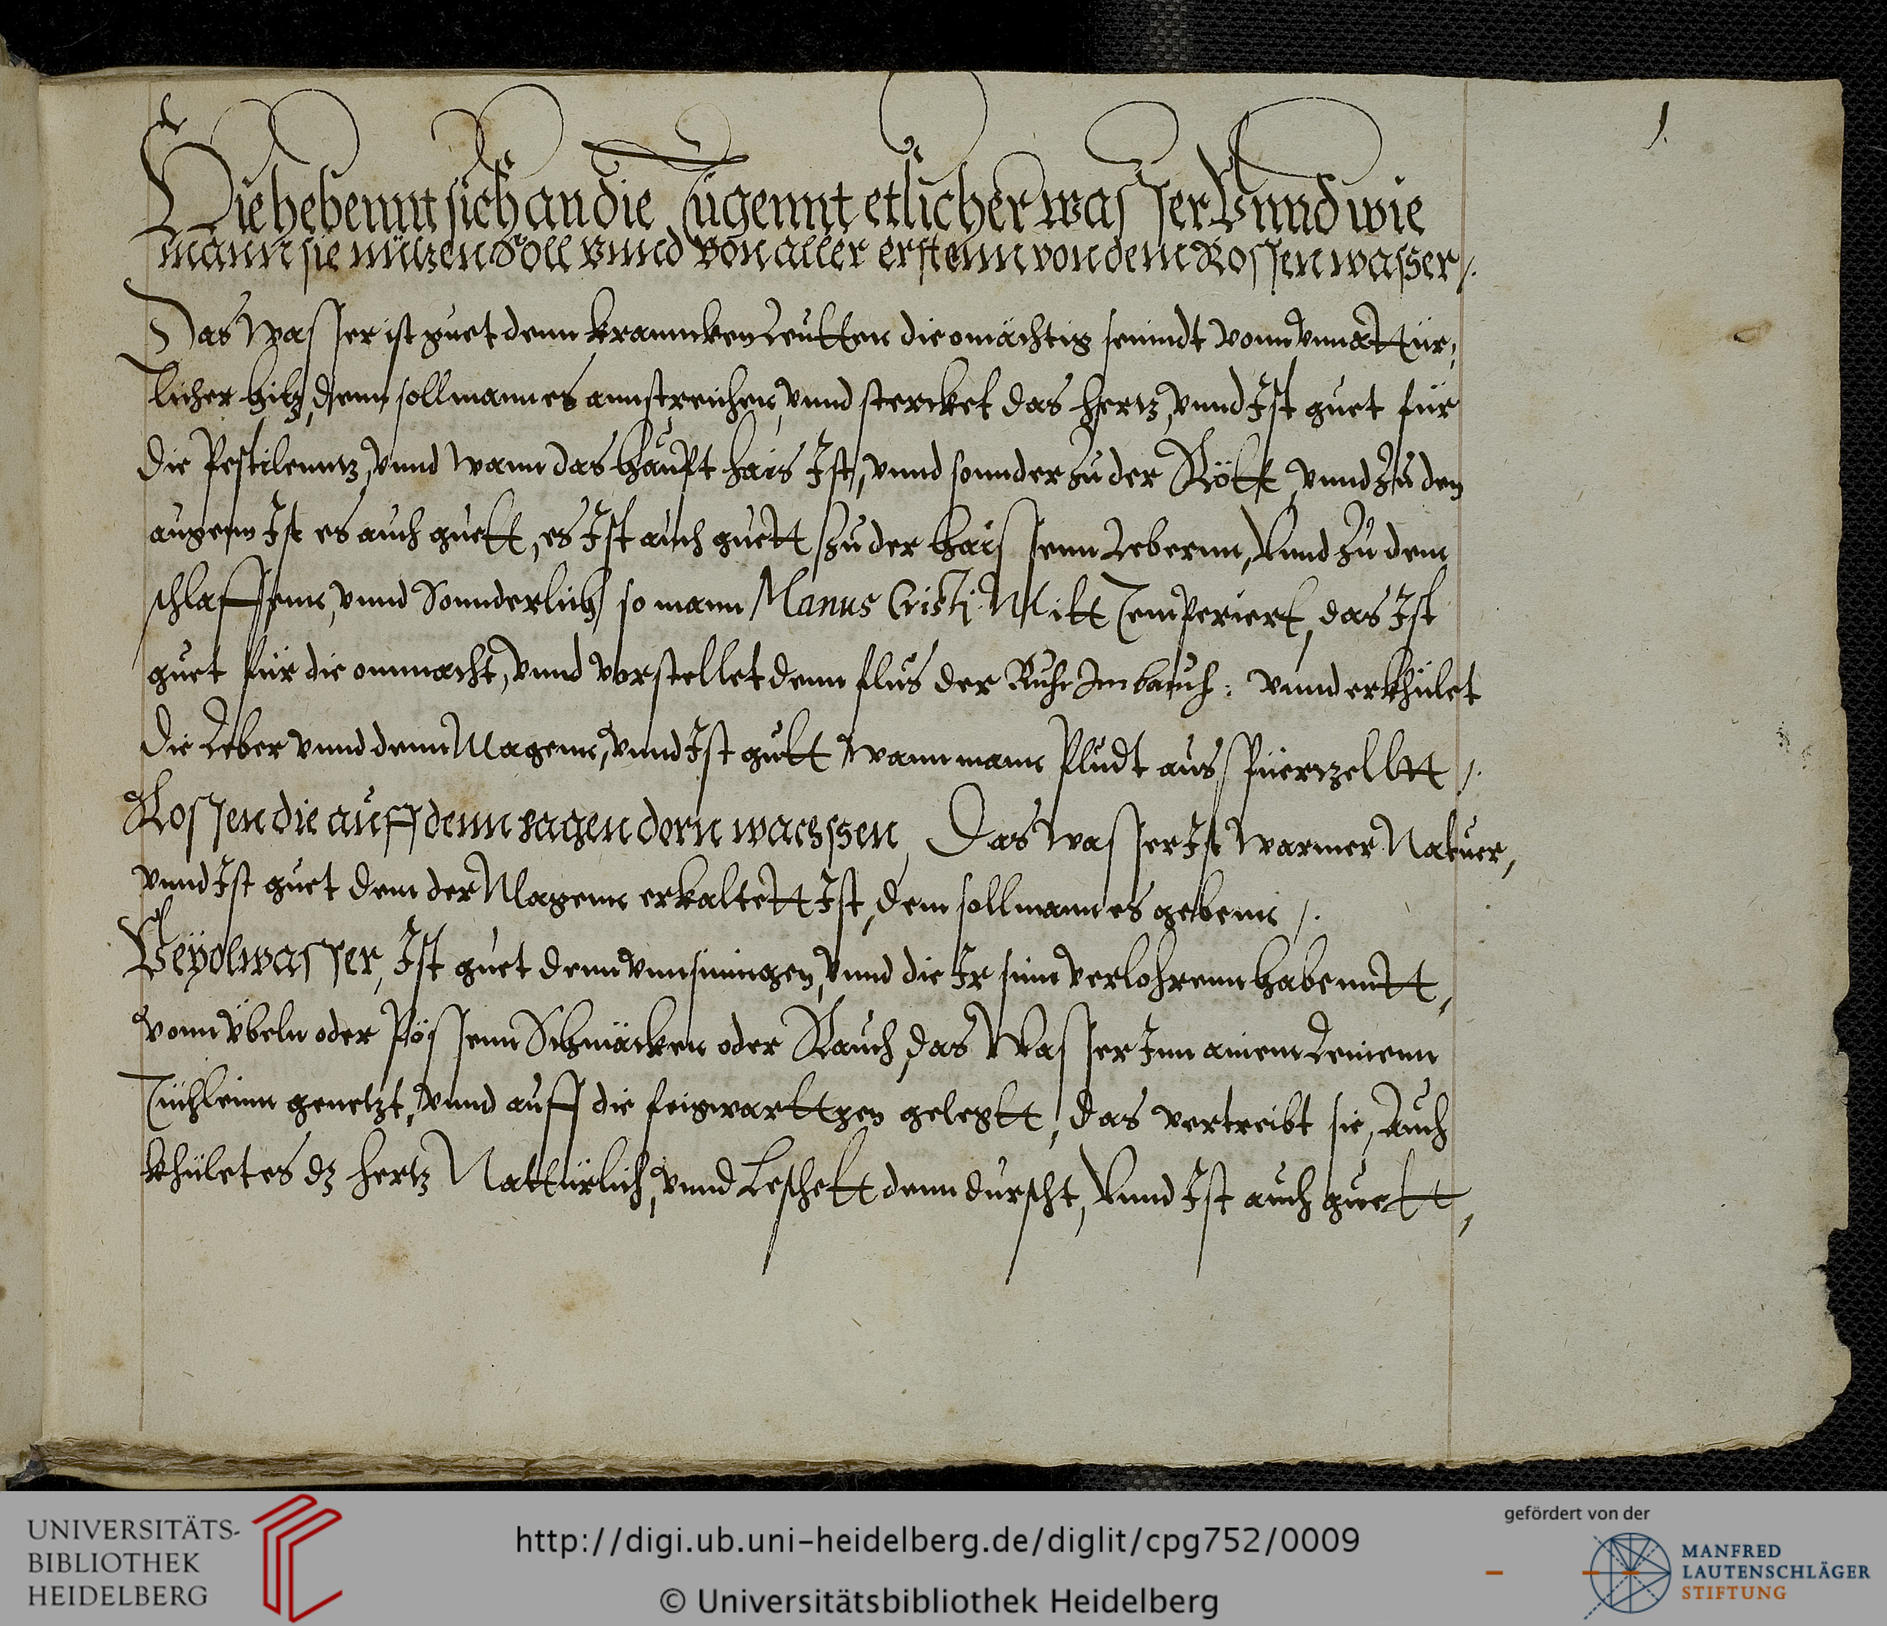 1.
Hie hebennt sich an die Tugennt etlicher wasser Vnnd wie
mann sie nützen Soll vnnd von aller erstenn von dem Rossen wasser /.
Das Wasser ist guet denn kranncken Leutten die omächtig seinndt vonn vnnattür,
licher hitz, denn soll mann es annstreichen, vnnd stercket das hertz, vnnd Ist guet für
die Pestilenntz, vnnd wann das haupt hais Ist, vnnd sonnder zu der Rött, vnnd zu den
augenn Ist es auch guett, es Ist auch guett zu der haissenn Lebernn, Vnnd zu dem
schlaffenn, vnnd Sonnderlich so mann Manus Cristi Mitt Temperiert, das Ist
guet für die onmacht, vnnd verstellet denn flus der Ruhr Im bauch: vnnd erkhület
die Leber vnnd denn Magenn, vnnd Ist gutt Wann mann Pludt aus Pürtzellt /.
Rossen die auff denn hagen dorn wachssen, Das Wasser Ist warmer Natuer,
vnnd Ist guet dem der Magenn erkaltett Ist, dem soll mann es gebenn /.
Veyolwasser, Ist guet denn vnnsinnigen, vnnd die Ir sinn verlohrenn habenntt,
vonn übeln oder Pössenn Schmäcken oder Rauch, das Wasser Inn ainem Leinenn
Tüchleinn genetzt, vnnd auff die feigwarttzen gelegtt, das vertreibt sie, Auch
khület es dz hertz Nattürlich, vnnd Leschett denn durscht, Vnnd Ist auch guett,
UNIVERSITÄTS-
BIBLIOTHEK
HEIDELBERG
http://digi.ub.uni-heidelberg.de/diglit/cpg752/0009
© Universitätsbibliothek Heidelberg
gefördert von der
MANFRED
LAUTENSCHLÄGER
STIFTUNG